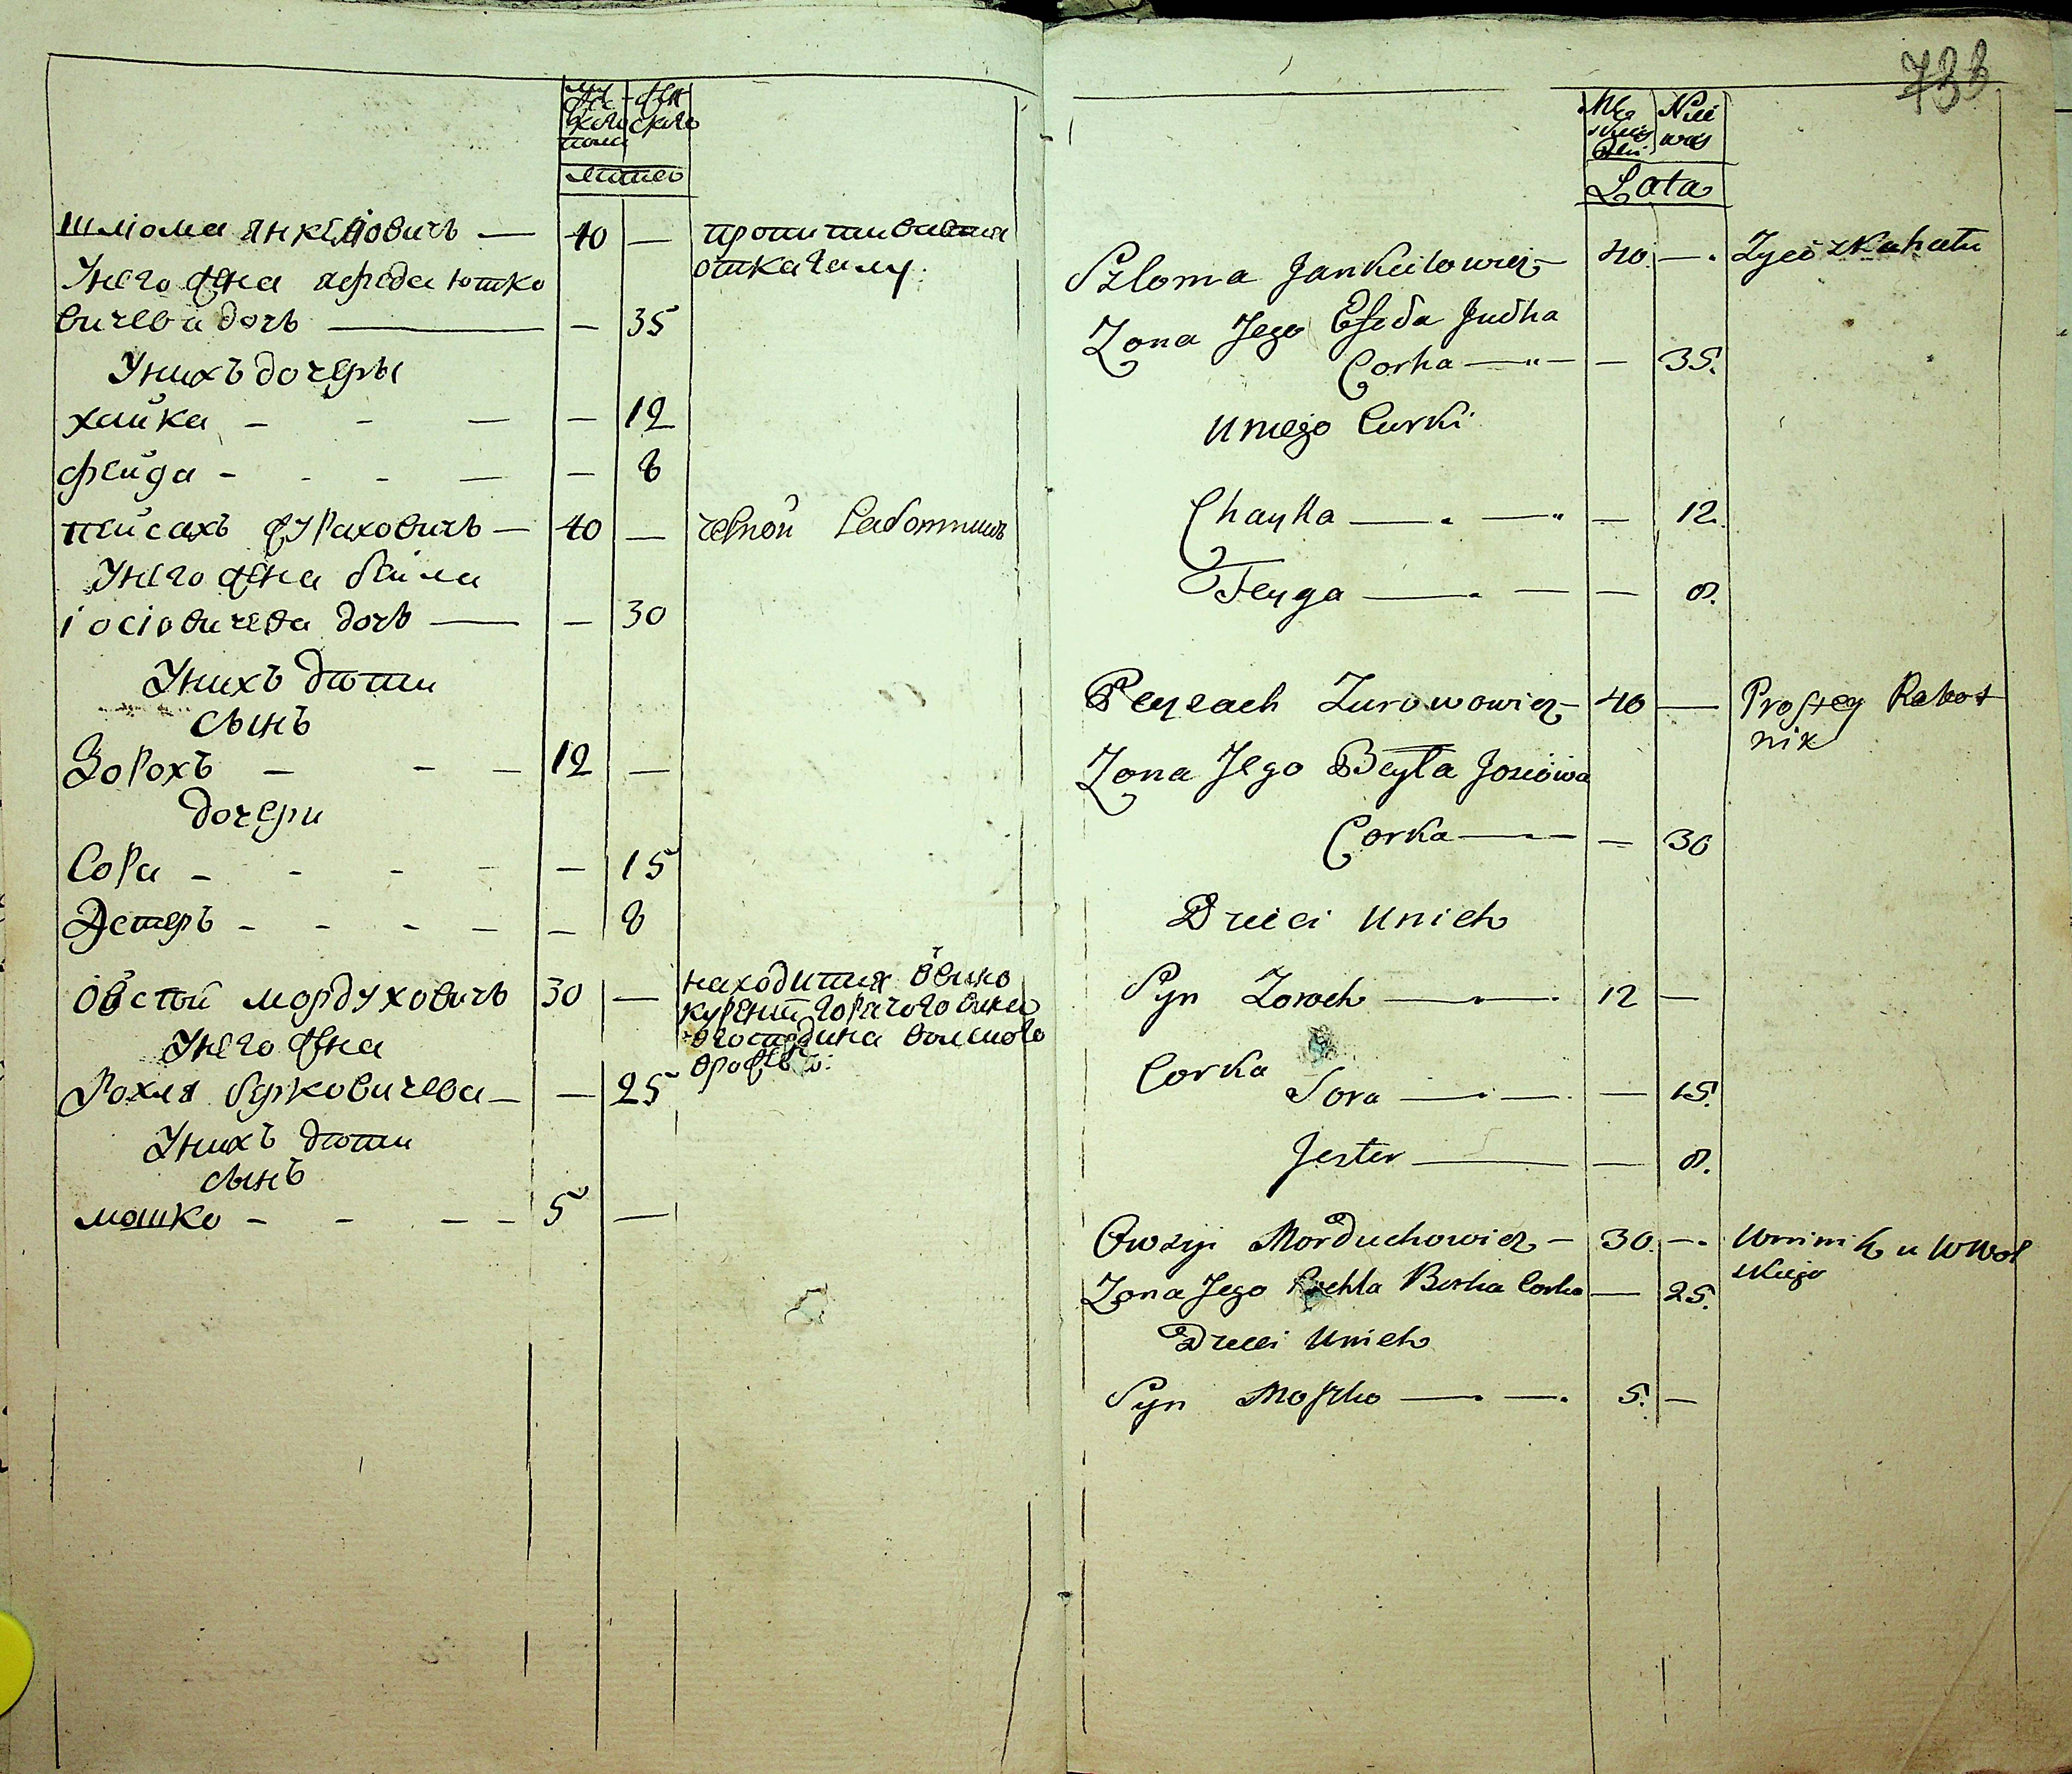 733
Муже
ского
пола
жен
скаго
летъ
Шліома Янкеліовичъ — 40 —
пропитываетца
отка галу.
Унего жена Асреда Ютко
вичева дочъ — — 35
Унихъ дочеры
хайка - - — — 12
фейга - - - — — 8
Пейсахъ Жураховичъ — 40 —
чорной работникъ
Унего жена бейла
іосіовичева дочъ — — 30
Унихъ дѣти
сынъ
Зорохъ — - - 12 —
дочери
Сора - - - - — 15
Эстеръ - - - — — 8
Овсѣй Мордуховичъ 30 —
находитца в вино
курении горачого вина
Унего жена
Рохля берковичева — — 25
Унихъ дѣти
сынъ
мошко - - - - 5 —
Męs
kiej
Płci
Nie
wias
Lata
Szloma Jankielowicz — 40. —.
Żyieć z Kahału
Zona Jego Judka
Corka — — 35.
U niego Curki
Chayka — — — 12.
Feyga — — — 8.
Peysach Zurowowicz — 40 —
Prostey Rabot
nik
Zona Jego Beyla Josiowa
Corka — — 30
Dzieci U nich
Syn Zoroch — 12 —
Corka
Sora — — — 15.
Jester — — 8.
Owsiy Morduchowicz — 30. —.
Zona Jego Rochla Berka Corka — 25.
Dzieci U nich
Syn Moszko — — 5. —